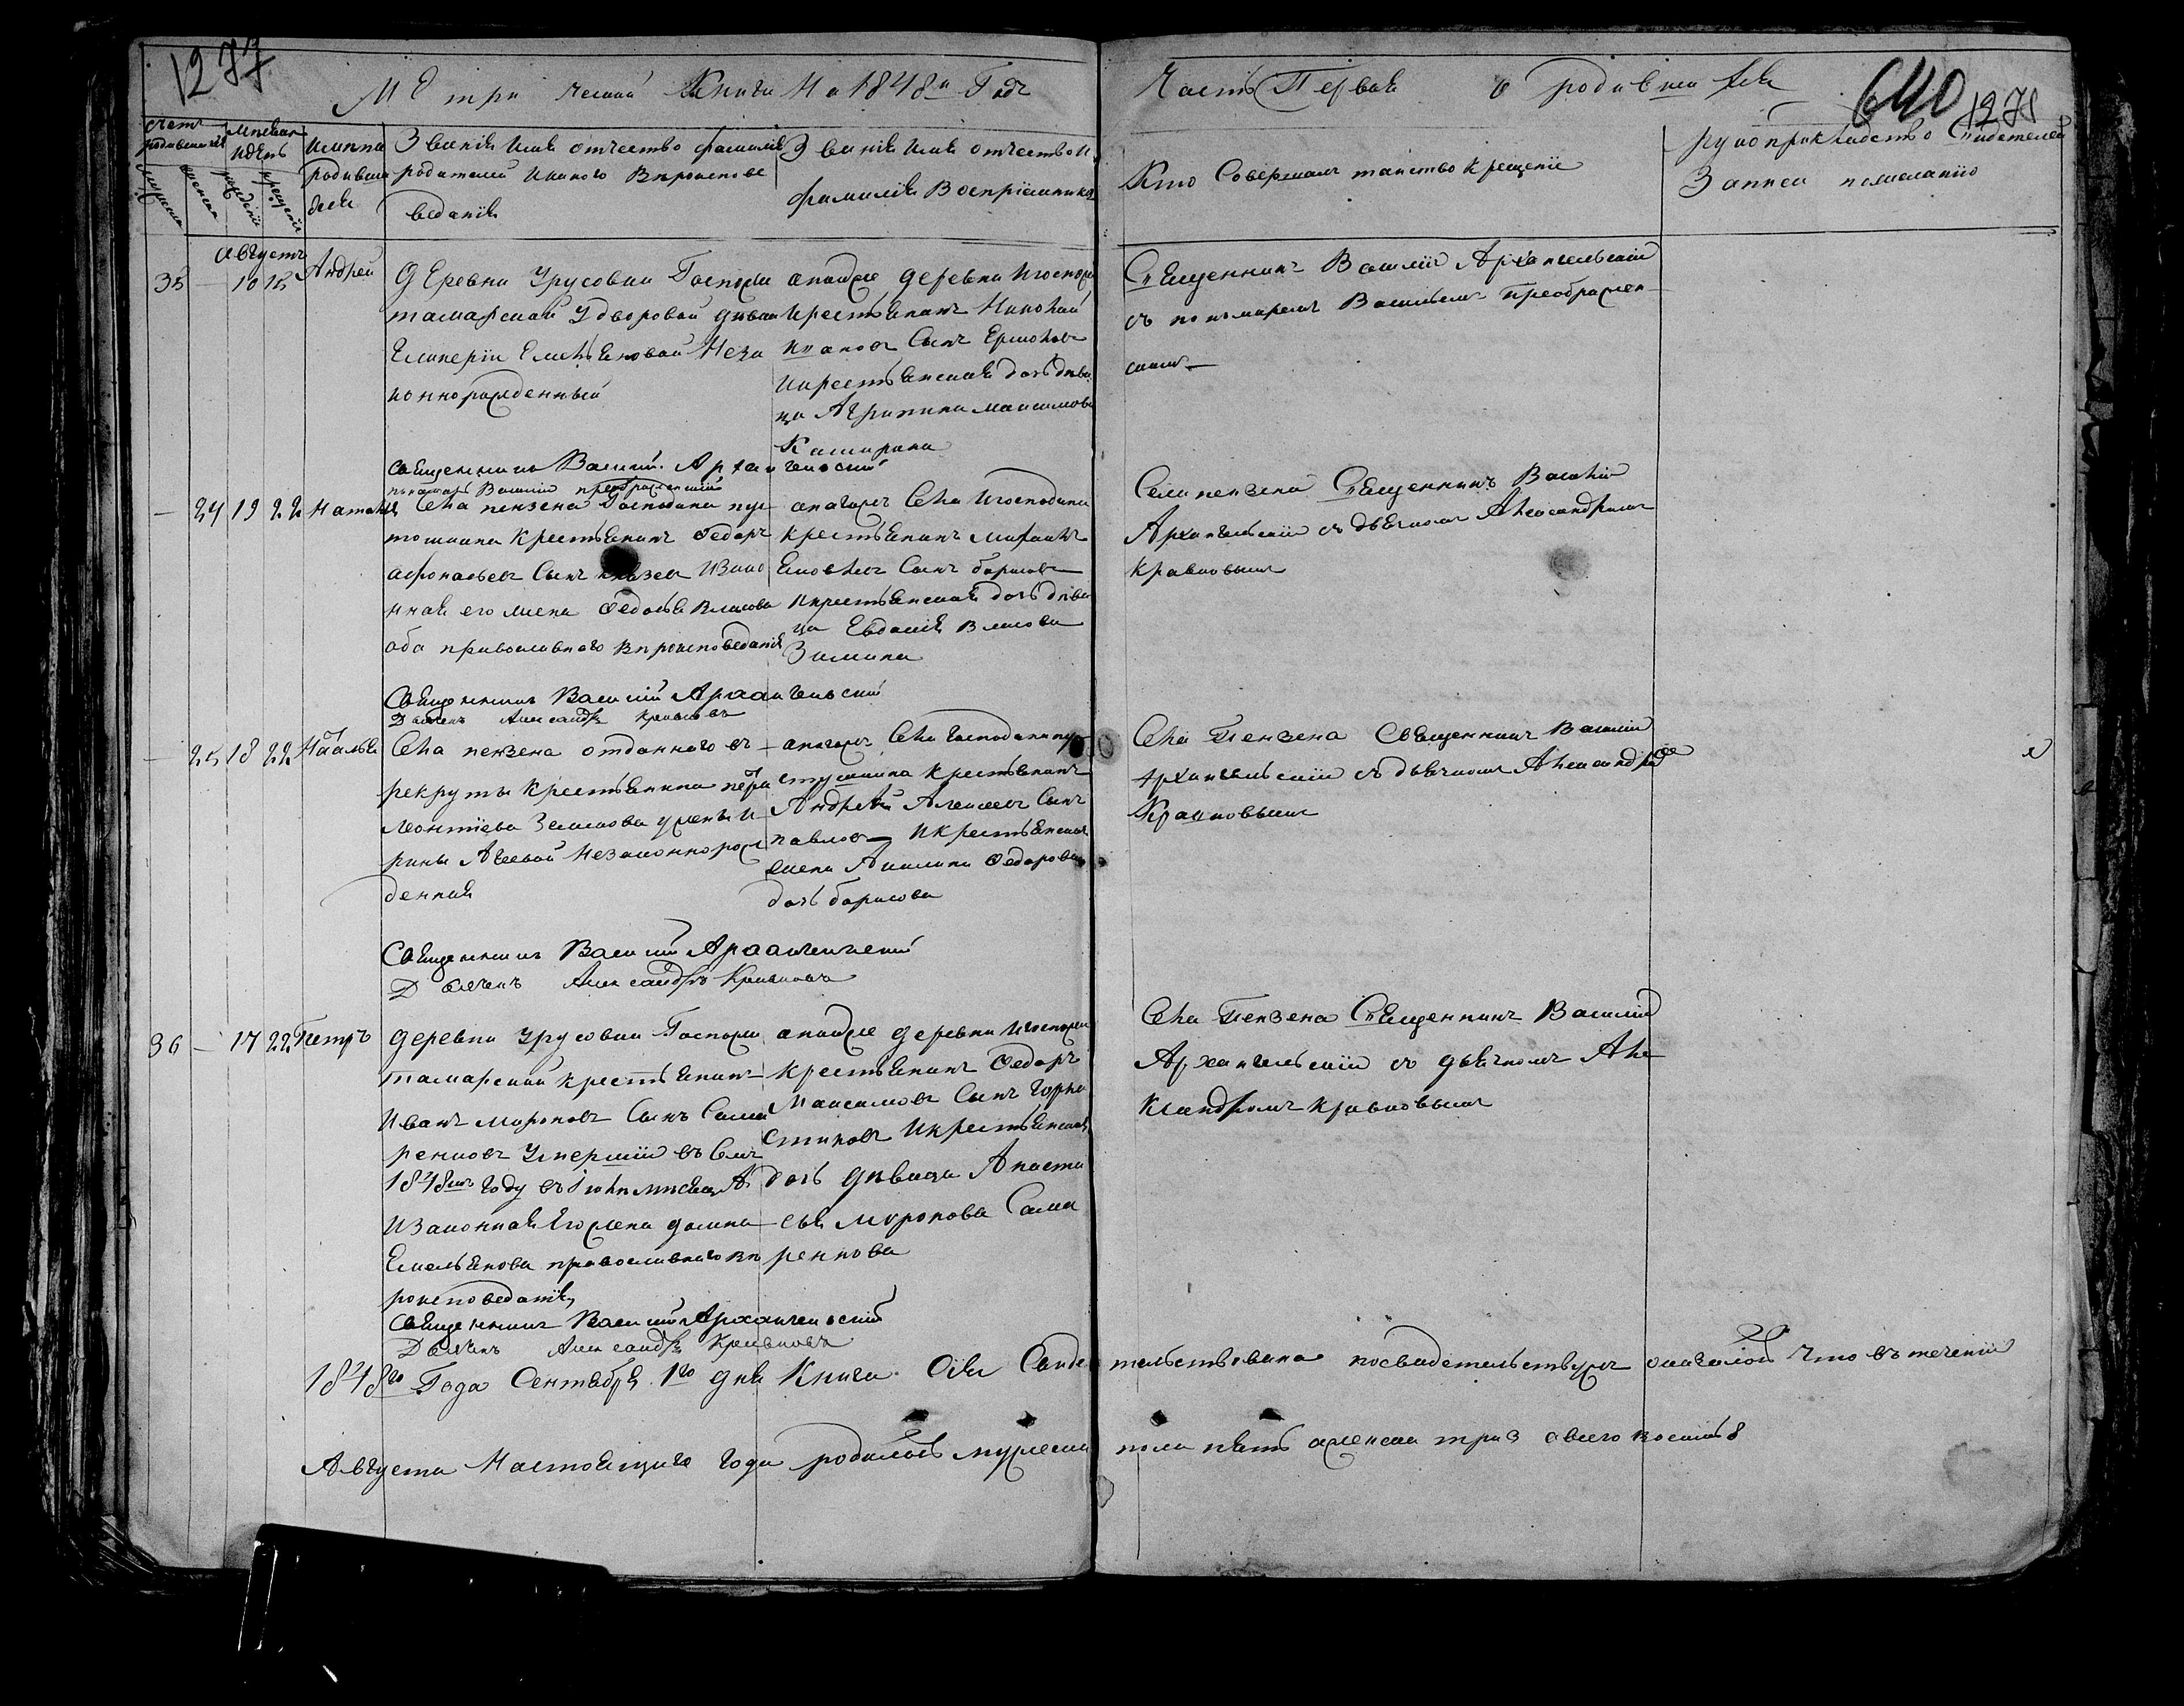 1277
Метрической Книги На 1848й Годъ
Часть Первая о родившихся
640 1278
счетъ родившихся
Мѣсяцъ и день
Имена родившихся
Званіе Имя отчество фамилія родителей И какого Вѣроисповеданія
Званіе Имя отчество и фамилія Воспріемниковъ
Кто Совершалъ таинство Крещенія
рукоприкладство Свидетелей Записи по желанію
мужеска
женска
рожденія
крещенія
Августъ
35 — 10 15 Андрей
деревни Урусовки Госпожи
тамарской У дворовой девки
Емельяновой Неза
коннорожденный
аная же деревни И госпожи
Крестьянинъ Николай
Ивановъ Сынъ Ермоловъ
И крестьянская дочь дѣви
ца Агрипина Максимова
Каширина
Священникъ Василій Архангельскій
съ пономаремъ Васильемъ Преображен
скимъ
Священникъ Василій Архангельскій
пономарь Василій преображенскій
— 24 19 22 Наталья
Села пензена Господина пус
тошкина Крестьянинъ Федоръ
афонасьевъ Сынъ князевъ И зако
нная его жена Федосья Власова
оба православнаго вѣроисповеданія
анагожъ Села И господина
Крестьянинъ
Сынъ борисовъ
И крестьянская дочь дѣви
ца Евдокія Власова
Зимина
Села пензена Священникъ Василій
Архангельскій съ дьячкомъ Александромъ
Кравковымъ
Священникъ Василій Архангельскій
Дьячекъ Александръ Кравковъ
— 25 18 22 Наталья
Села пензена отданного въ
рекруты Крестьянина
Леонтіева у жены И
рины Агеевой Незаконнорож
денная
анагожъ Села Господина пу
стошкина Крестьянинъ
Андрей Алексеевъ Сынъ
павловъ И крестьянская
жена Акилина Федорова
дочь борисова
Села Пензена Священникъ Василій
Архангельскій съ дьячкомъ Александромъ
Кравковымъ
Священникъ Василій Архангельскій
Дьячекъ Александръ Кравковъ
36 — 17 22 Петръ
деревни Урусовки Госпожи
тамарской крестьянинъ
Иванъ мироновъ Сынъ Сама
ренковъ Умершій въ Семъ
1848мъ году въ Іюлѣ мѣсяцѣ
И законная Его жена домна
Емельянова православнаго вѣ
роисповеданія
аная же деревни И госпожи
Крестьянинъ Федоръ
Максимовъ Сынъ Горно
стаковъ И крестьянская
дочь дѣвица Анаста
сья миронова Сама
ренкова
Села Пензена Священникъ Василій
Архангельскій со дьячкомъ Але
ксандромъ Кравковымъ
Священникъ Василій Архангельскій
Дьячекъ Александръ Кравковъ
1848го Года Сентября 1го дня Книга Сія Свиде тельствована по свидетельству оказалось Что въ теченіи
Августа Настоящаго года родилось мужеска пола пять а женска три 3 а всего восемь 8